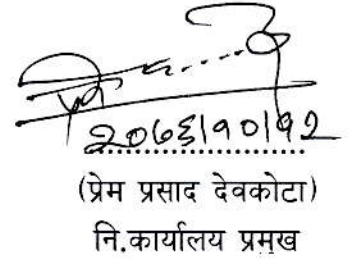 २०७६।१०।१२
(प्रेम प्रसाद देवकोटा)
नि.कार्यालय प्रमुख